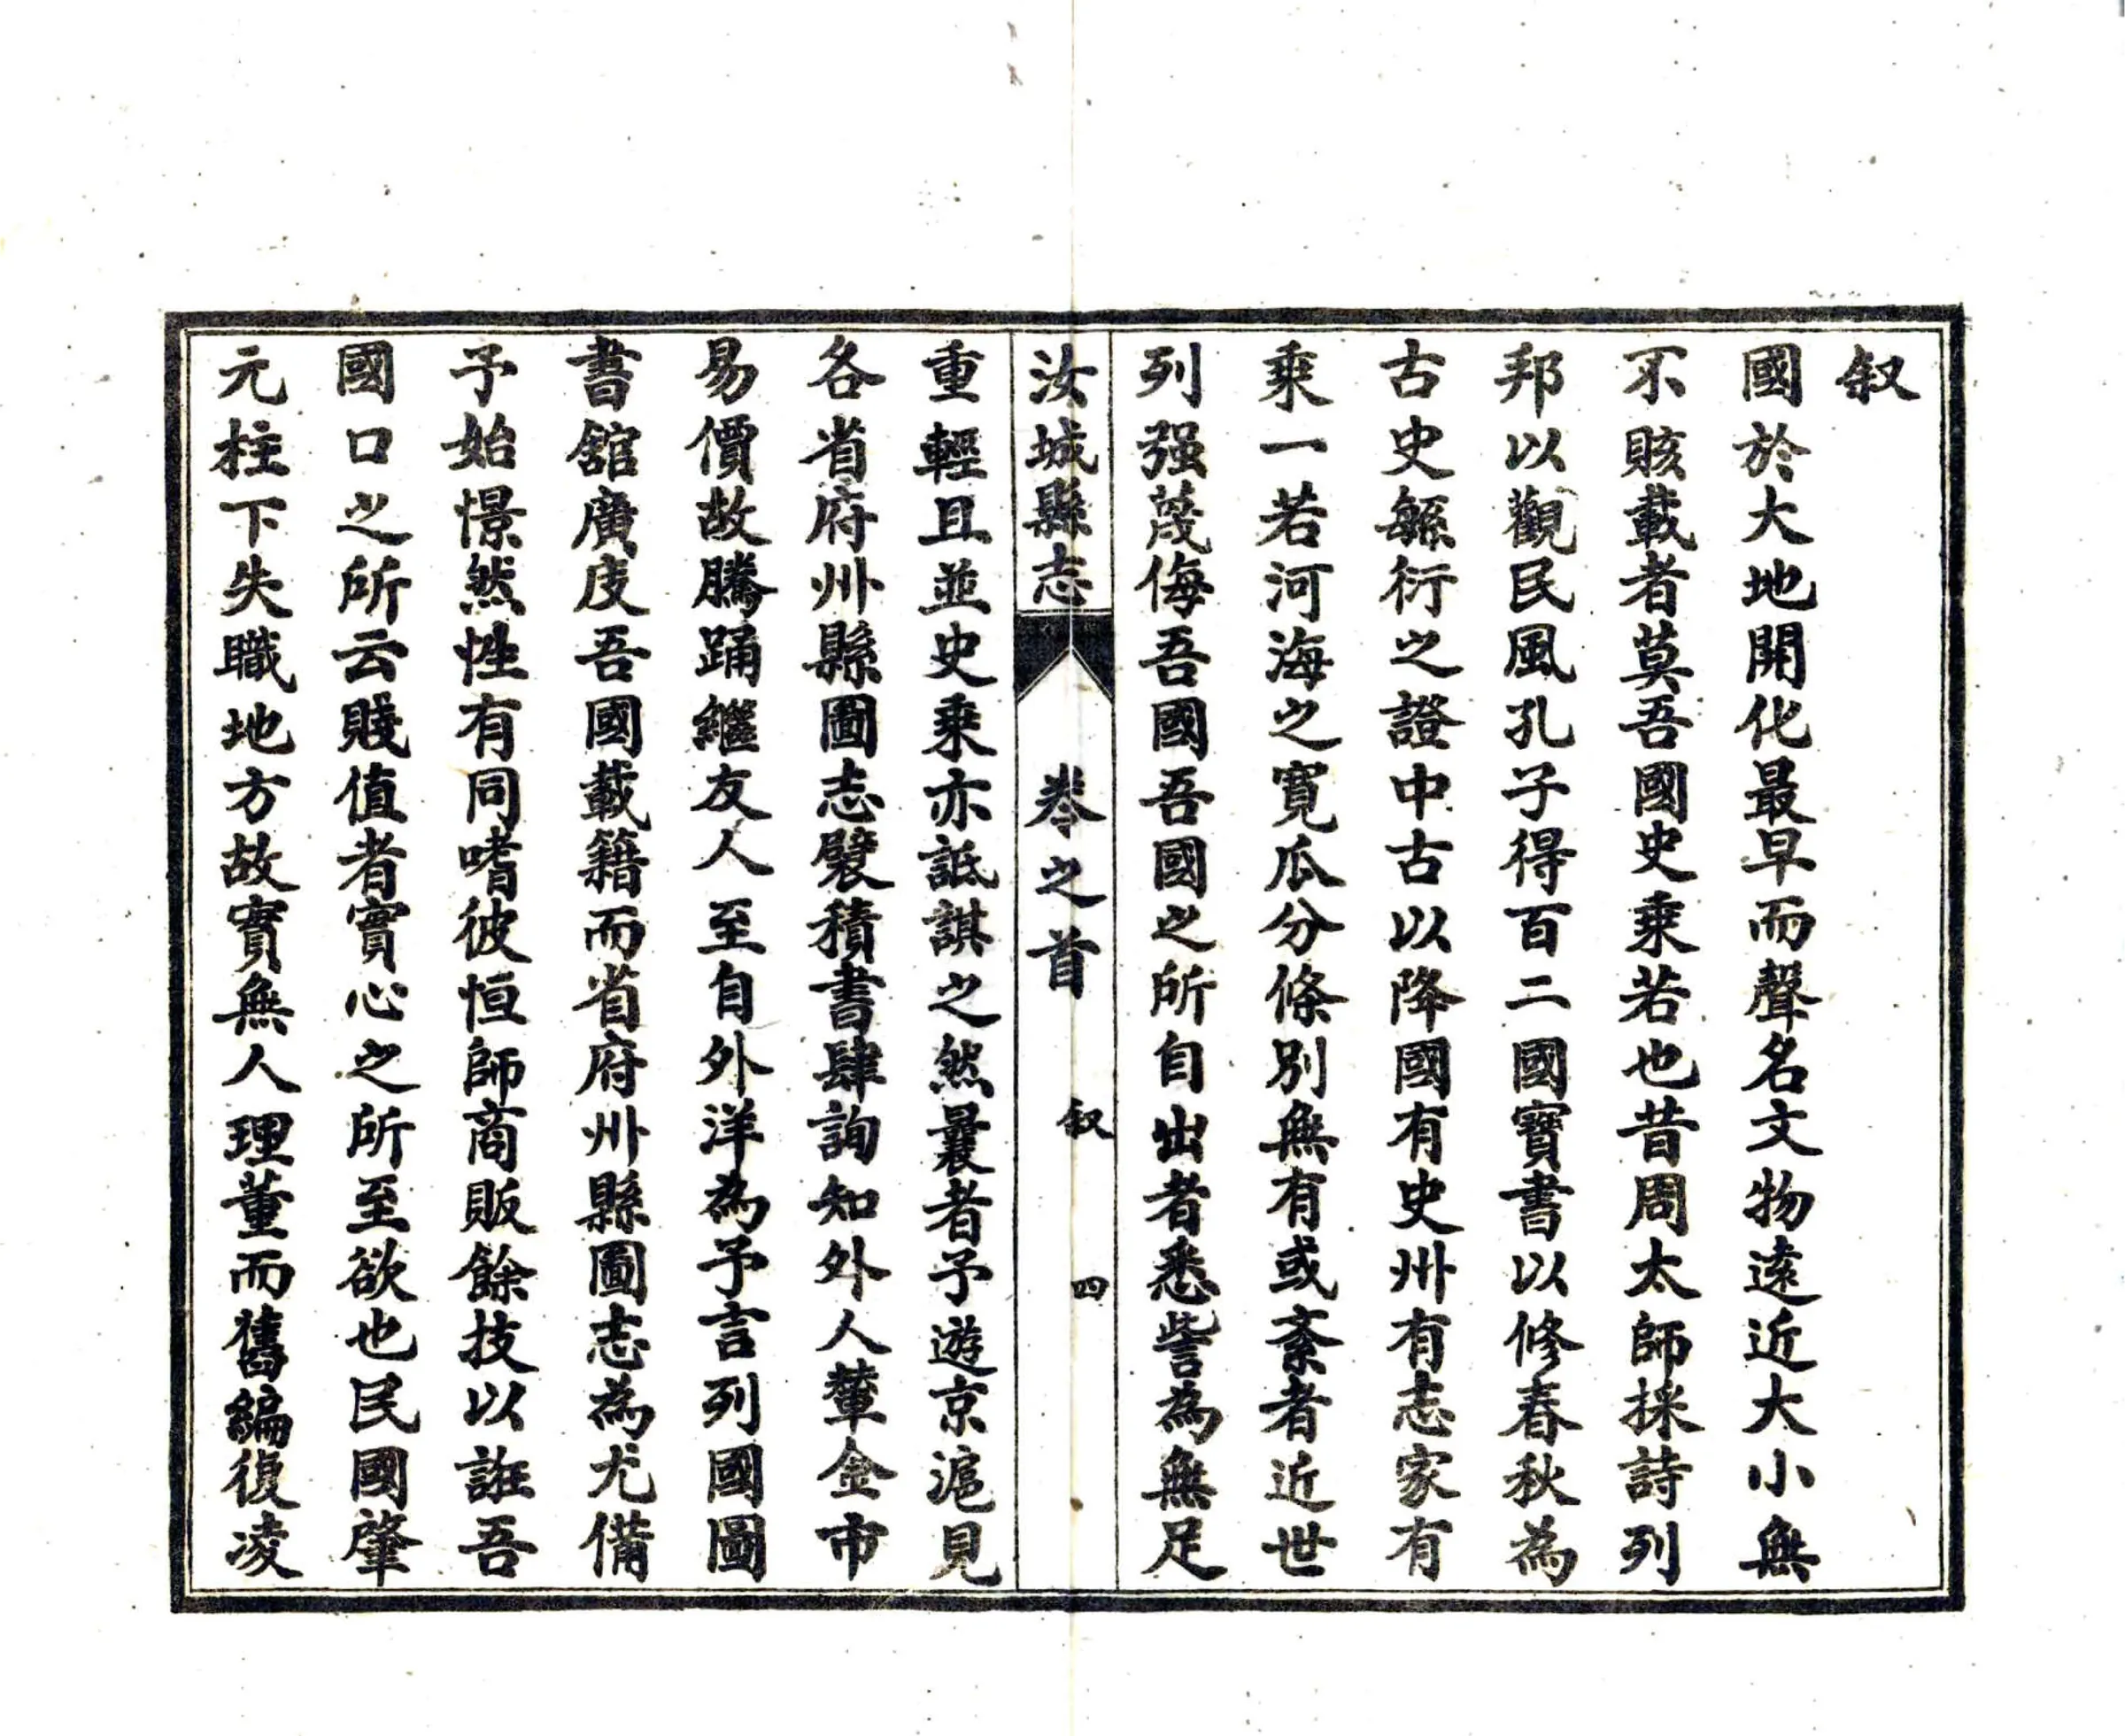 叙
國於大地開化最早而聲名文物遠近大小無
不賅載者莫吾國史乘若也昔周太師採詩列
邦以觀民風孔子得百二國寶書以修春秋為
古史緜衍之證中古以降國有史州有志家有
乘一若河海之寬瓜分條別無有或紊者近世
列强蔑侮吾國吾國之所自出者悉訾為無足
汝城縣志 卷之首 叙 四
重輕且並史乘亦詆諆之然曩者予遊京滬見
各省府州縣圖志襞積書肆詢知外人輦金市
易價故騰踊繼友人至自外洋為予言列國圖
書舘廣庋吾國載籍而省府州縣圖志為尤備
予始憬然性有同嗜彼恒師商販餘技以誑吾
國口之所云賤值者實心之所至欲也民國肇
元柱下失職地方故實無人理董而舊編復凌